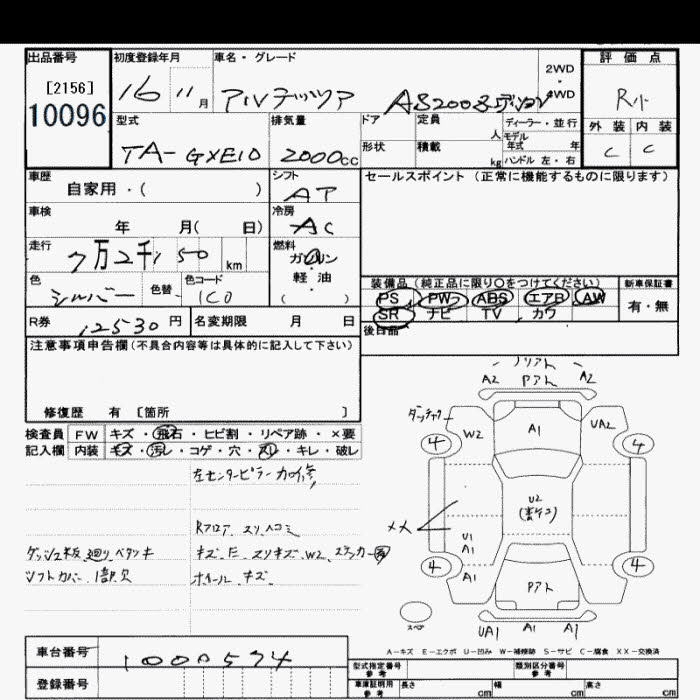 出品番号 初度登録年月 車名・グレード 2WD ・ 4WD 評価点
[2156] 16 11月 アルテッツァ R小
10096 型式 排気量 ドア 定員 人 ディーラー・並行 外装 内装
TA-GXE10 2000cc 形状 積載 kg モデル年式 年 ハンドル 左・右 C C
車歴 シフト セールスポイント(正常に機能するものに限ります)
自家用・( ) AT
車検 冷房
年 月( 日) AC
走行 燃料
7万2千150km ガソリン
色 色替 色コード 軽油 装備品(純正品に限り○をつけてください) 新車保証書
シルバー 1C0 ( ) PS PW ABS エアB AW 有・無
R券 12530円 名変期限 月 日 SR ナビ TV カワ
後日品
注意事項申告欄(不具合内容等は具体的に記入して下さい)
修復歴 有 [箇所 ]
検査員 FW キズ・飛石・ヒビ割・リペア跡・×要
記入欄 内装 キズ・汚レ・コゲ・穴・スレ・キレ・破レ
Rフロア スリ凹ミ
シフトカバー 1部欠 ホイール キズ
A2 Pアト A2
W2 A1 UA2
4 4
U2
XX
U1
A1
4 4
A1 Pアト
スペア
UA1 A1 A1
A-キズ E-エクボ U-凹み W-補修跡 S-サビ C-腐食 XX-交換済
車台番号 1000574
登録番号
型式指定番号 参考 類別区分番号 参考
車庫証明用 参考 長さ cm 幅 cm 高さ cm